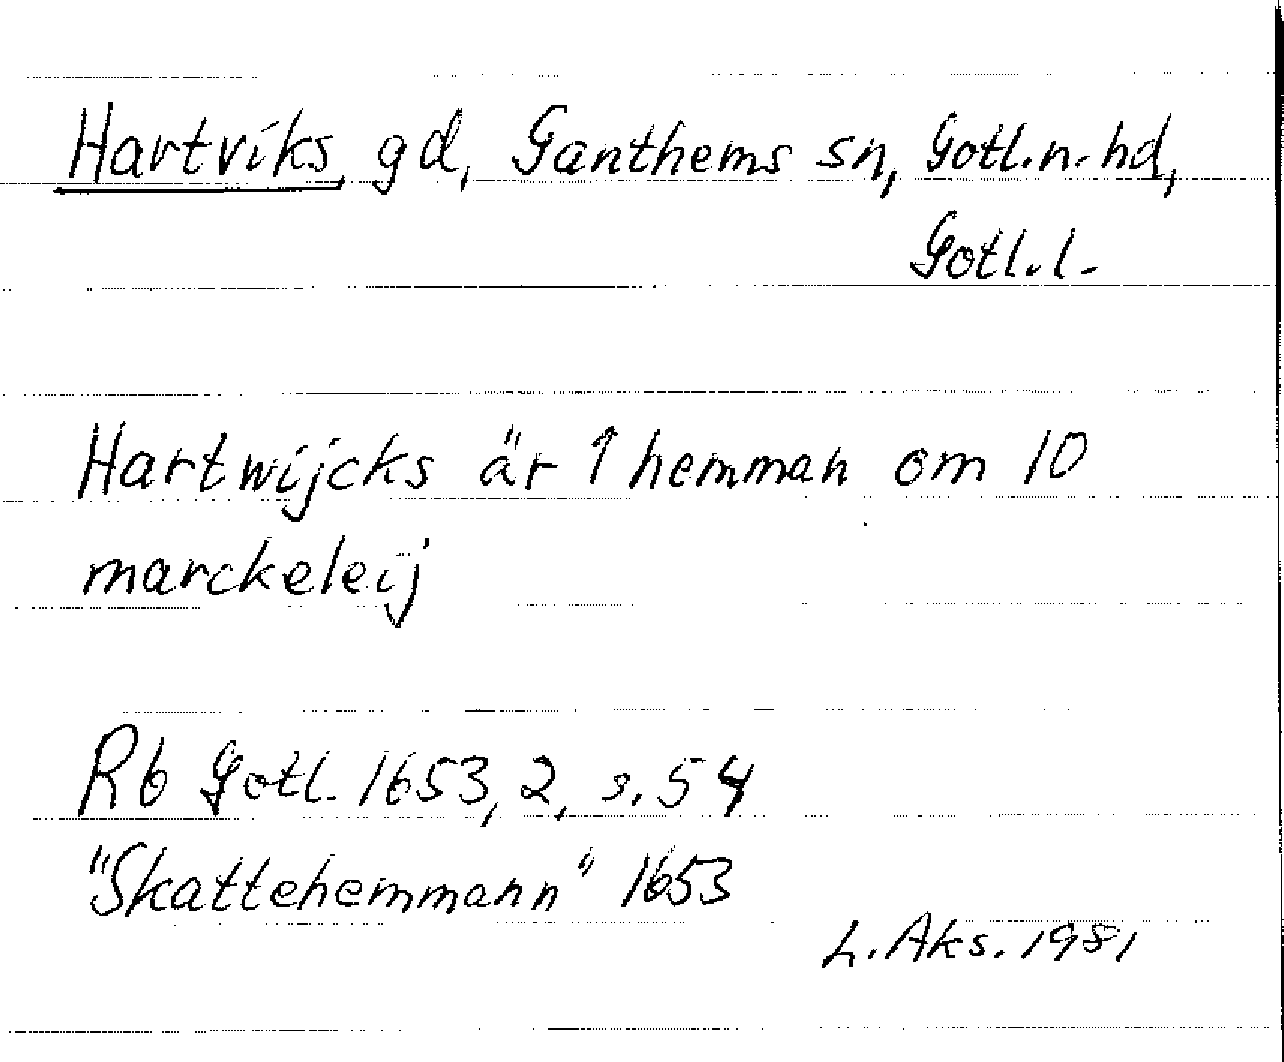 Hartviks, gd, Ganthems sn, Gotl.n.hd,
Gotl.l.
Hartwijcks är 1 hemman om 10
marckeleij
Rb Gotl. 1653, 2, s. 54
"Skattehemmann" 1653
L. Aks. 1981